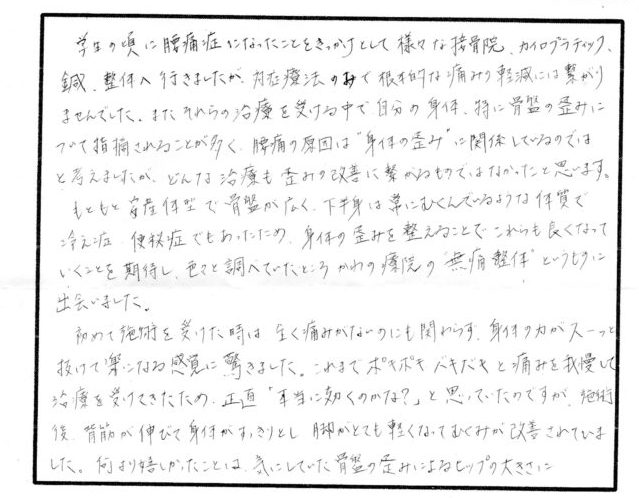 学生の頃に腰痛症になったことをきっかけとして様々な接骨院、カイロプラティック、
鍼、整体へ行きましたが、対症療法のみで根本的な痛みの軽減には繋がり
ませんでした。またそれらの治療を受ける中で自分の身体、特に骨盤の歪みに
ついて指摘されることが多く、腰痛の原因は"身体の歪み"に関係しているのでは
と考えましたが、どんな治療も歪みの改善に繋がるものではなかったと思います。
もともと安産体型で骨盤が広く、下半身は常にむくんでいるような体質で
冷え症、便秘症でもあったため、身体の歪みを整えることでこれらも良くなって
いくことを期待し、色々と調べていたところかわの療院の"無痛整体"というものに
出会いました。
初めて施術を受けた時は全く痛みがないのにも関わらず、身体の力がスーっと
抜けて楽になる感覚に驚きました。これまでポキポキバキバキと痛みを我慢して
治療を受けてきたため、正直「本当に効くのかな?」と思っていたのですが、施術
後、背筋が伸びて身体がすっきりとし、脚がとても軽くなってむくみが改善されていま
した。何より嬉しかったことは、気にしていた骨盤の歪みによるヒップの大きさに